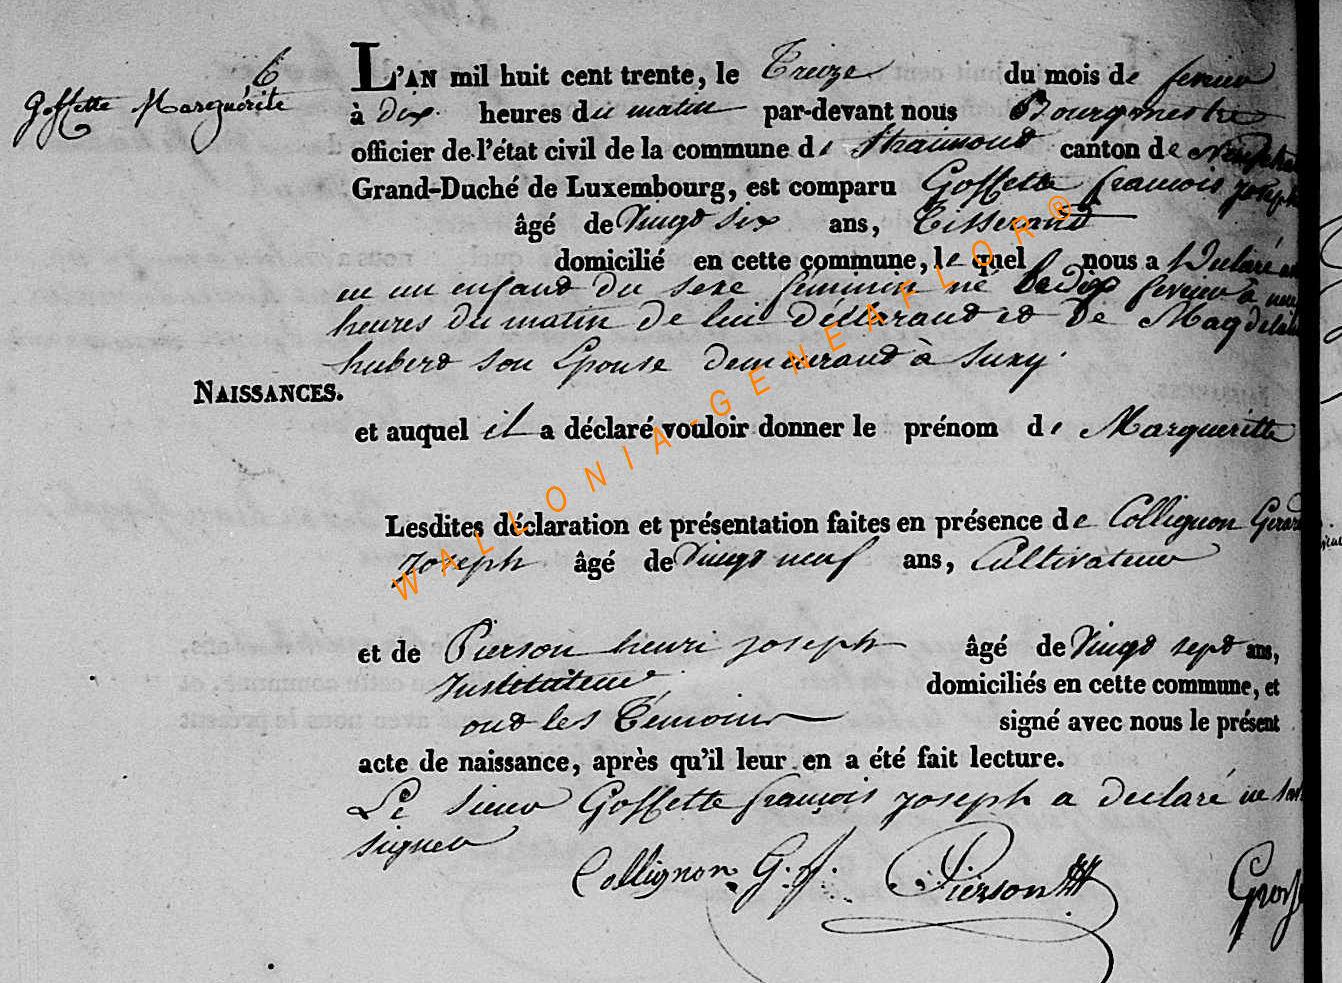 6
Goffette Marguérite
L'AN mil huit cent trente, le Treize du mois de fevrier
à dix heures du matin par-devant nous Bourgmestre
officier de l'état civil de la commune de Straimont canton de
Grand-Duché de Luxembourg, est comparu Goffette francois joseph
âgé de Vingt six ans, Tisserand
domicilié en cette commune, le quel nous a Declaré
un enfant du sexe féminin né le dix fevrier à
heures du matin de lui Déclarant et de
hubert son Epouse demeurant à Suxy.
NAISSANCES.
et auquel il a déclaré vouloir donner le prénom de Margueritte
Lesdites déclaration et présentation faites en présence de Collignon Gerard
Joseph âgé de Vingt neuf ans, Cultivateur
et de Pierson henri joseph âgé de Vingt sept ans,
Instituteur domiciliés en cette commune, et
ont les Témoins signé avec nous le présent
acte de naissance, après qu'il leur en a été fait lecture.
Le sieur Goffette françois joseph a declaré ne
signer
Collignon G. J. Pierson
WALLONIA-GENEAFLOR®